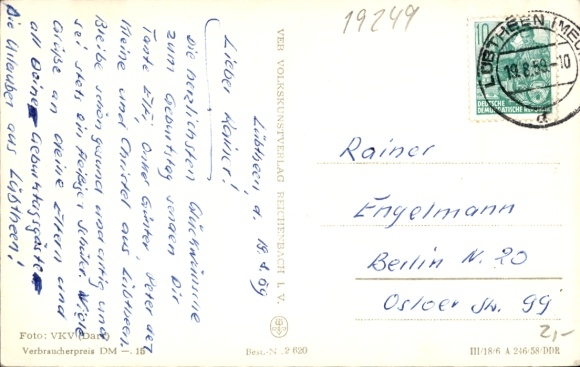 19249
LÜBTHEEN (MECK
19.8.59.-10
d
10
DEUTSCHE
DEMOKRATISCHE REPUBLIK
Lübtheen, d. 18.8.59
Lieber Rainer!
Die herzlichsten Glückwünsche
zum Geburtstag senden Dir
Tante Elli, Onkel Günter, Peter der
Kleine und Christel aus Lübtheen.
Bleibe schön gesund und artig und
sei stets ein fleißiger Schüler. Viele
Grüße an deine Eltern und
all Deine Geburtstagsgäste
Die Urlauber aus Lübtheen!
VEB VOLKSKUNSTVERLAG REICHENBACH I. V.
Rainer
Engelmann
Berlin N. 20
Osloer Str. 99
2,-
Foto: VKV (Darr)
Verbraucherpreis DM —.15
Best.-Nr. 2 620
III/18/6 A 246·58·DDR